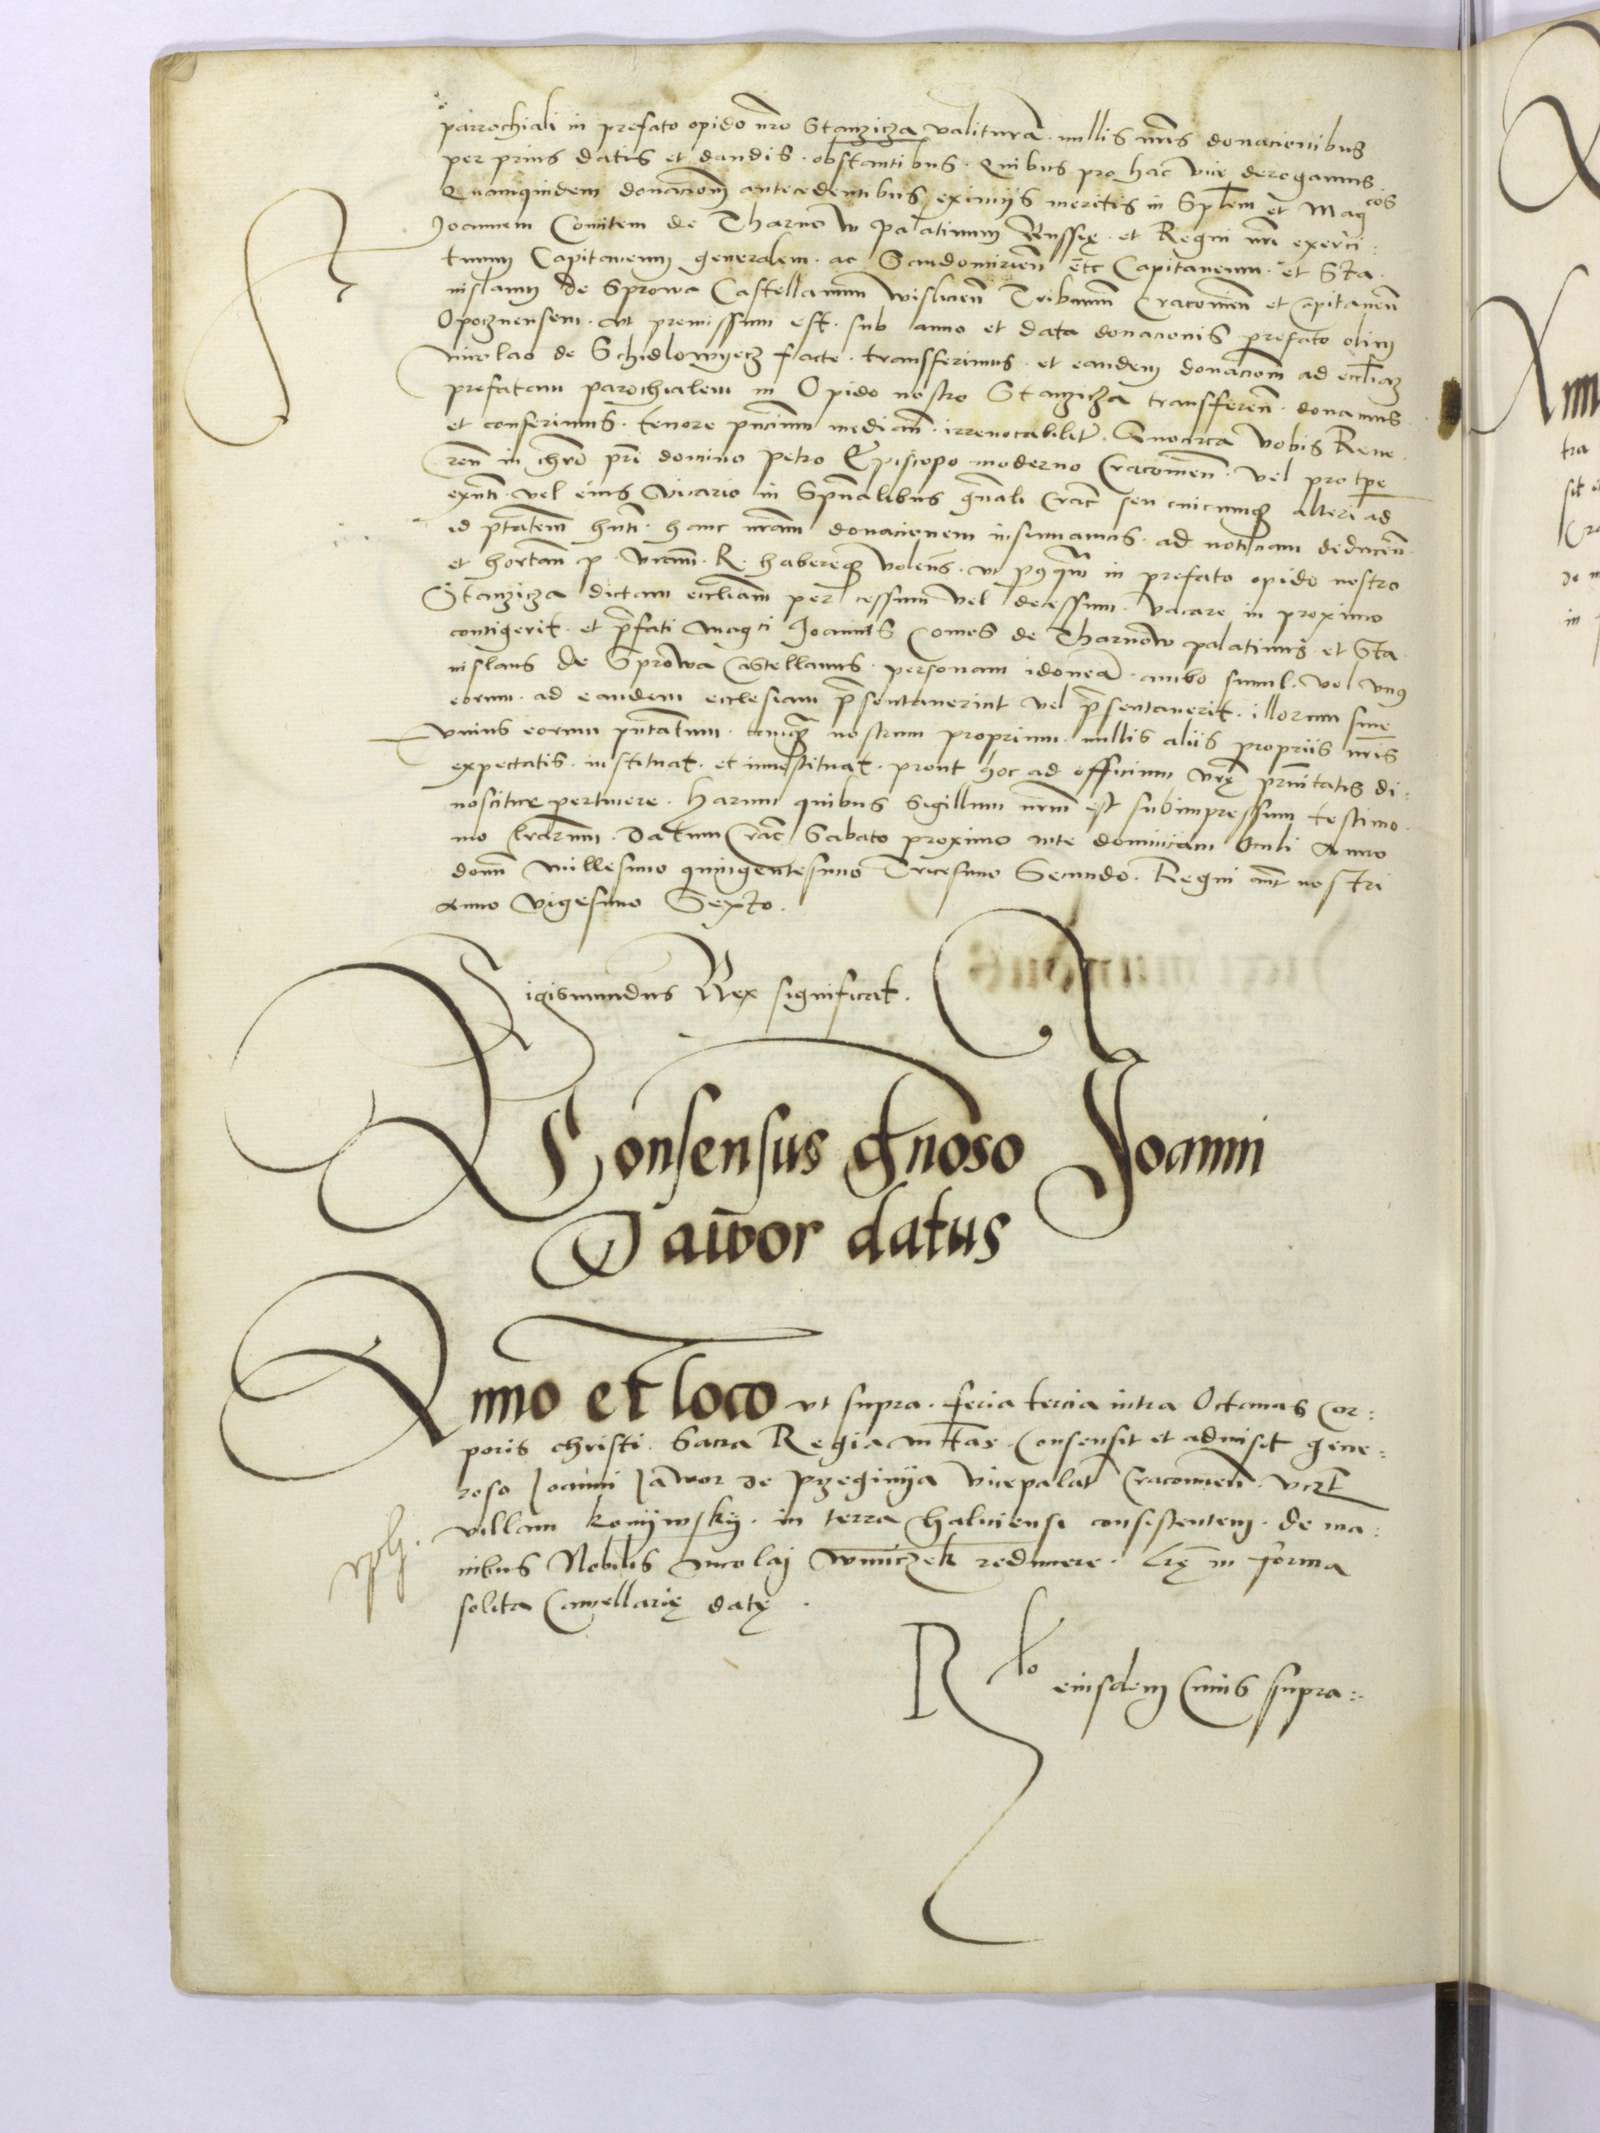 parrochiali in prefato opido nro Stanzicza valiturā. nullis nris donacionibus
per prius datis et dandis. obstantibus. Quibus pro hac vice derogamus.
Quamquidem donacionē antecedentibus eximijs meritis in Splem et Magcos
Joannem Comitem de Tharnow palatinum Russię. et Regni nri exerci:
tuum Capitaneum generalem. ac Sandomirień etc Capitaneum. et Sta
nislaum de Sprowa Castellanum wislicień Tribunum Cracovień et capitaneū
Opocznensem. ut premissum est. sub anno et data donacionis prefato olim
nicolao de Schidlowyecz facte. transferimus. et eandem donacionē ad eccliaz
prefatam parochialem in Opido nostro Stanzicza transferen̄. donamus.
et conferimus. tenore pn̄cium median̄. irrevocabilitr̄. Quocirca vobis Reve
ren̄ in chrō pri domino Petro Episcopo moderno Cracovien̄. vel pro tpe
exn̄ti. vel eius vicario in Spūalibus gn̄ali Crac̄ seu cuicumq alteri ad
id ptātem hn̄ti. hanc nram donacionem insinuamus. ad noticiam deducen̄
et hortan̄ p. vram. R. habereq volen̄s. ut pq̄ in prefato opido nostro
Stanzicza dictam eccliam per cessum vel decessum. vacare in proximo
contigerit. et prefati magci Joannes Comes de Tharnow palatinus et Sta
nislaus de Sprowa castellanus. personam idoneā. ambo simul. vel unus
eorum. ad eandem ecclesiam presentaverint vel presentaverit. illorum sive
unius eorum pn̄tatum. tamq̄ nostrum proprium. nullis aliis propriis nris
expectatis. instituat. et investituat. prout hoc ad officium vrę prnitatis di:
noscitur pertinere. Harum quibus sigillum nrum est subimpressum testimo
nio lrarum. Datum Crac̄ Sabato proximo ante dominicam Oculi Anno
domī millesimo quingentesimo Tricesimo Secundo. Regni aut̄ nostri
Anno vigesimo Sexto.
Sigismundus Rex significat.
Consensus gn̄oso Joanni
Jawor datus
Anno et loco ut supra. feria tercia intra Octavas Cor:
poris christi. Sacra Regia mtas. Consensit et admisit gene:
roso Joanni Jawor de Przeginija vicepalat̄ Cracovien̄.
villam konijwskij. in terra haliciensi consistentem. de ma:
nibus Nobilis nicolaj wnuczek redimere. Lrę in forma
solita Cancellarię datę.
Rlo eiusdem Cuius supra:.